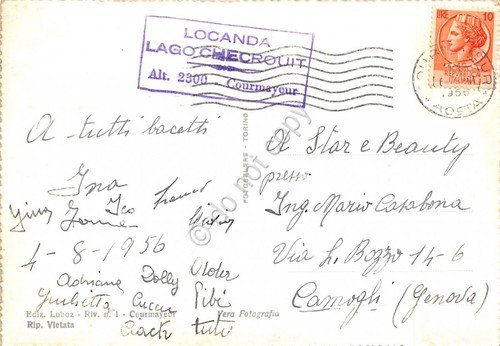 LOCANDA
LAGO CHECROUIT
Alt. 2300 - Courmayeur
LIRE 10
1956
AOSTA
A tutti bacetti
Ina
Franco
4-8-1956
Adriana Dolly Older
Giulietta Cucciu Pibi
Ciack tuti
Ediz. Luboz - Riv. n. 1 - Courmayeur
Rip. Vietata
Vera Fotografia
FOTOCELERE - TORINO
A Star e Beauty
presso
Ing. Mario Casabona
Via L. Bozzo 14-6
Camogli (Genova)
do not copy